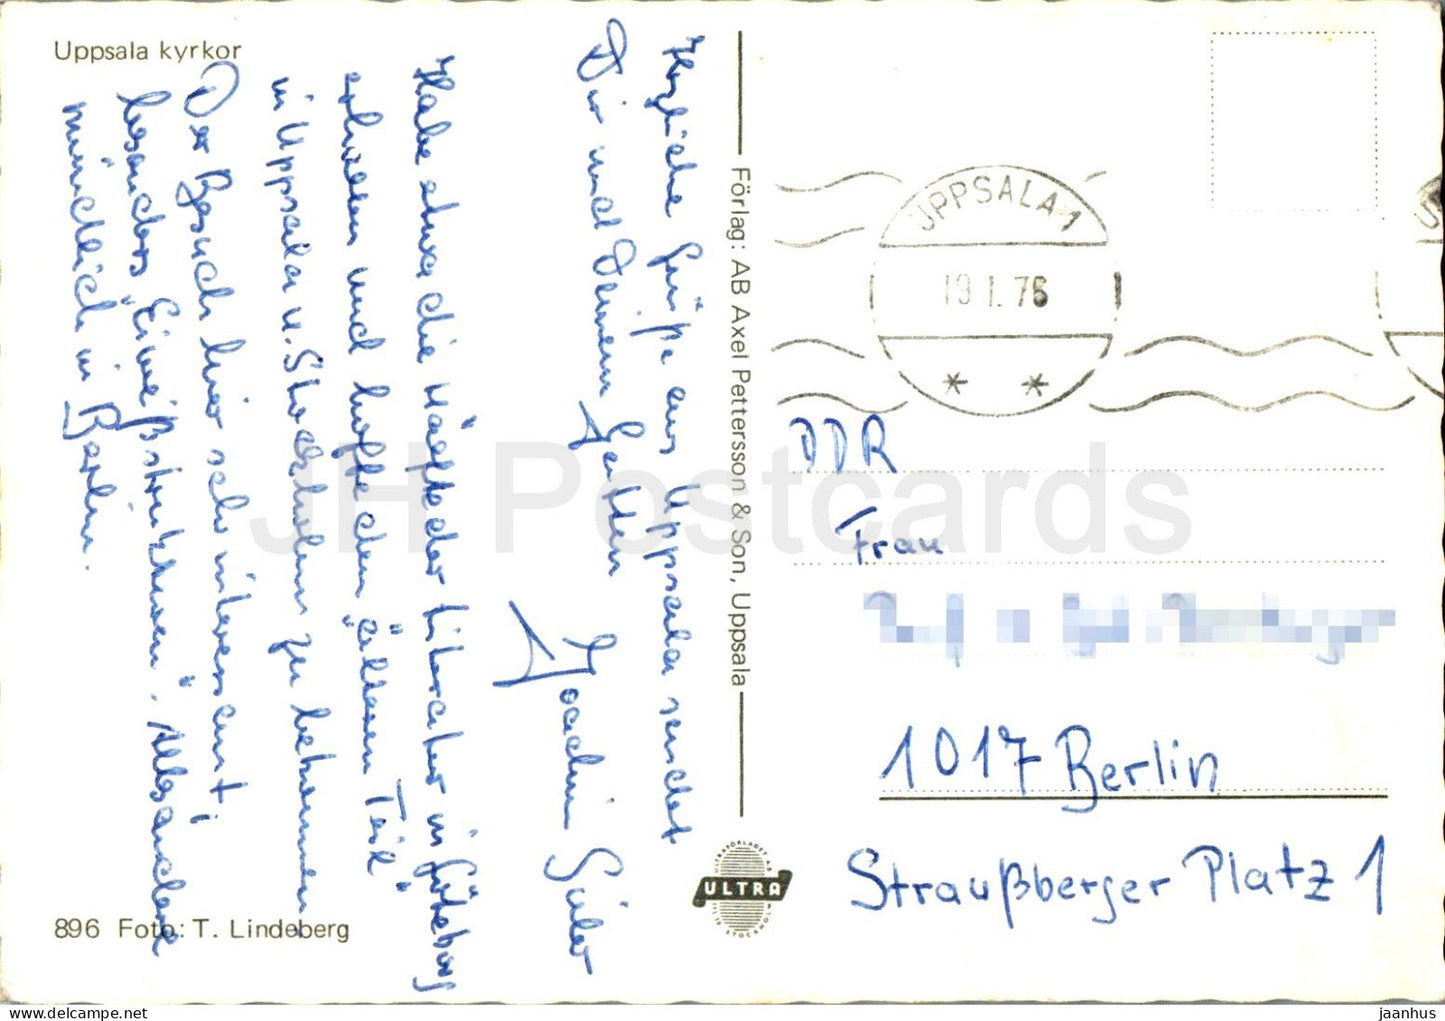 Uppsala kyrkor
Herzliche Grüße aus Uppsala sendet
Dir und Deinem Gatten
Joachim
Habe etwa die Hälfte der Literatur in Göteborg
erhalten und hoffe den "älteren Teil"
in Uppsala u. Stockholm zu bekommen
Der Besuch hier sehr interessant;
besonders "Eiweißstrukturen".
mündlich in Berlin.
896 Foto: T. Lindeberg
Förlag: AB Axel Pettersson & Son, Uppsala
ULTRA
UPPSALA 1
19 1. 76
* *
DDR
Frau
1017 Berlin
Straußberger Platz 1
JH Postcards
hippostcard.com
jaanhus